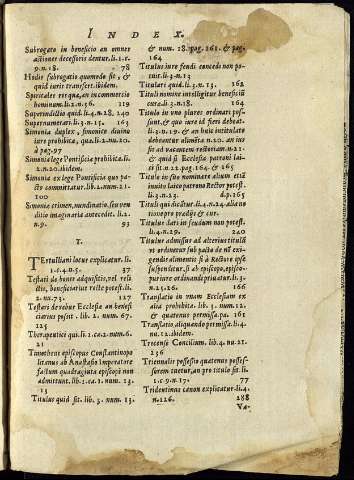 INDEX.
Subrogato in beneficio an omnes
actiones decessoris dentur. li. 1. c.
9. n. 18. 78
Hodie subrogatis quomodo sit, &
quid iuris transfert. ibidem.
Spiritales res quæ, an in commercio
hominum. li. 2. n. 56. 119
Superindictio quid. li. 4. n. 28. 240
Supernumerari. li. 3. n. 14. 163
Simonia duplex, simonice diuino
iure prohibita, quæ. li. 2. nu. 20.
à pag. 97
Simonia lege Pontificia prohibita. li.
2. n. 20. ibidem.
Simonia ex lege Pontificia quo pa-
cto committatur. lib. 2. num. 21.
100
Simoniæ crimen, nundinatio, seu ven
ditio imaginaria antecedit. li. 2.
n. 9. 93
T.
TErtulliani locus explicatur. li.
1. c. 4. n. 5. 37
Testari de bonis adquisitis, vel reli
ctis, beneficiarius recte potest. li.
2. nu. 73. 127
Testari de rebus Ecclesiæ an benefi
ciarius possit. lib. 2. num. 67.
125
Therapeutici qui. li. 1. ca. 2. num.
21
Timotheus episcopus Constantinopo
litanus ab Anastasio imperatore
factum quadragiuta episcopi non
admittunt. lib. 3. ca. 1. num. 13.
13
Titulus quid sit. lib. 3. num. 13.
& num. 28. pag. 261. & pag.
164
Titulus iure fendi concedi non po-
tuit. li. 3. n. 13
Titulare quid. li. 3. n. 13. 163
Tituli nomine intelligitur beneficiũ
cura. li. 3. n. 18. 164
Titulo in vno plures ordinari pos-
sunt, & quo iure id fieri debeat.
li. 3. n. 19. & an huic instituto
debeantur alimẽta n. 20. an ius
sit ad vacantem rectoriam. n. 21.
& quid si Ecclesiæ patroni lai-
ci sit n. 22. pag. 164. & 165
Titulo in suo nominare alium etiã
inuito laico patrono Rector potest.
li. 3. n. 23. d. p. 165
Tituli qui dicãtur. li. 4. n. 24. aliena
tione prædijs & cur.
Titulare dari in feudum non potest.
li. 4. n. 29. 240
Titulus admissus ad alterius tituli
vt ordinetur sub pacto de nõ exi-
gendis alimentis si à Rectore ipse
suspendatur, si ab episcopo, episco-
pus iure ordinandi priuatur. li. 3.
n. 25. 26. 166
Translatio in vnam Ecclesiam ex
alia prohibita. lib. 3. num. 12.
& quatenus permissa. pa. 161
Translatio aliquando permissa. li. 4.
nu. 12. ibidem.
Trecense Concilium. lib. 4. nu. 21.
236
Triennalis possessio quatenus posses-
sorem tueatur, an pro titulo sit. li.
1. c. 9. n. 17. 77
Tridentinus canon explicatur. li. 4.
n. 126. 288
Va-